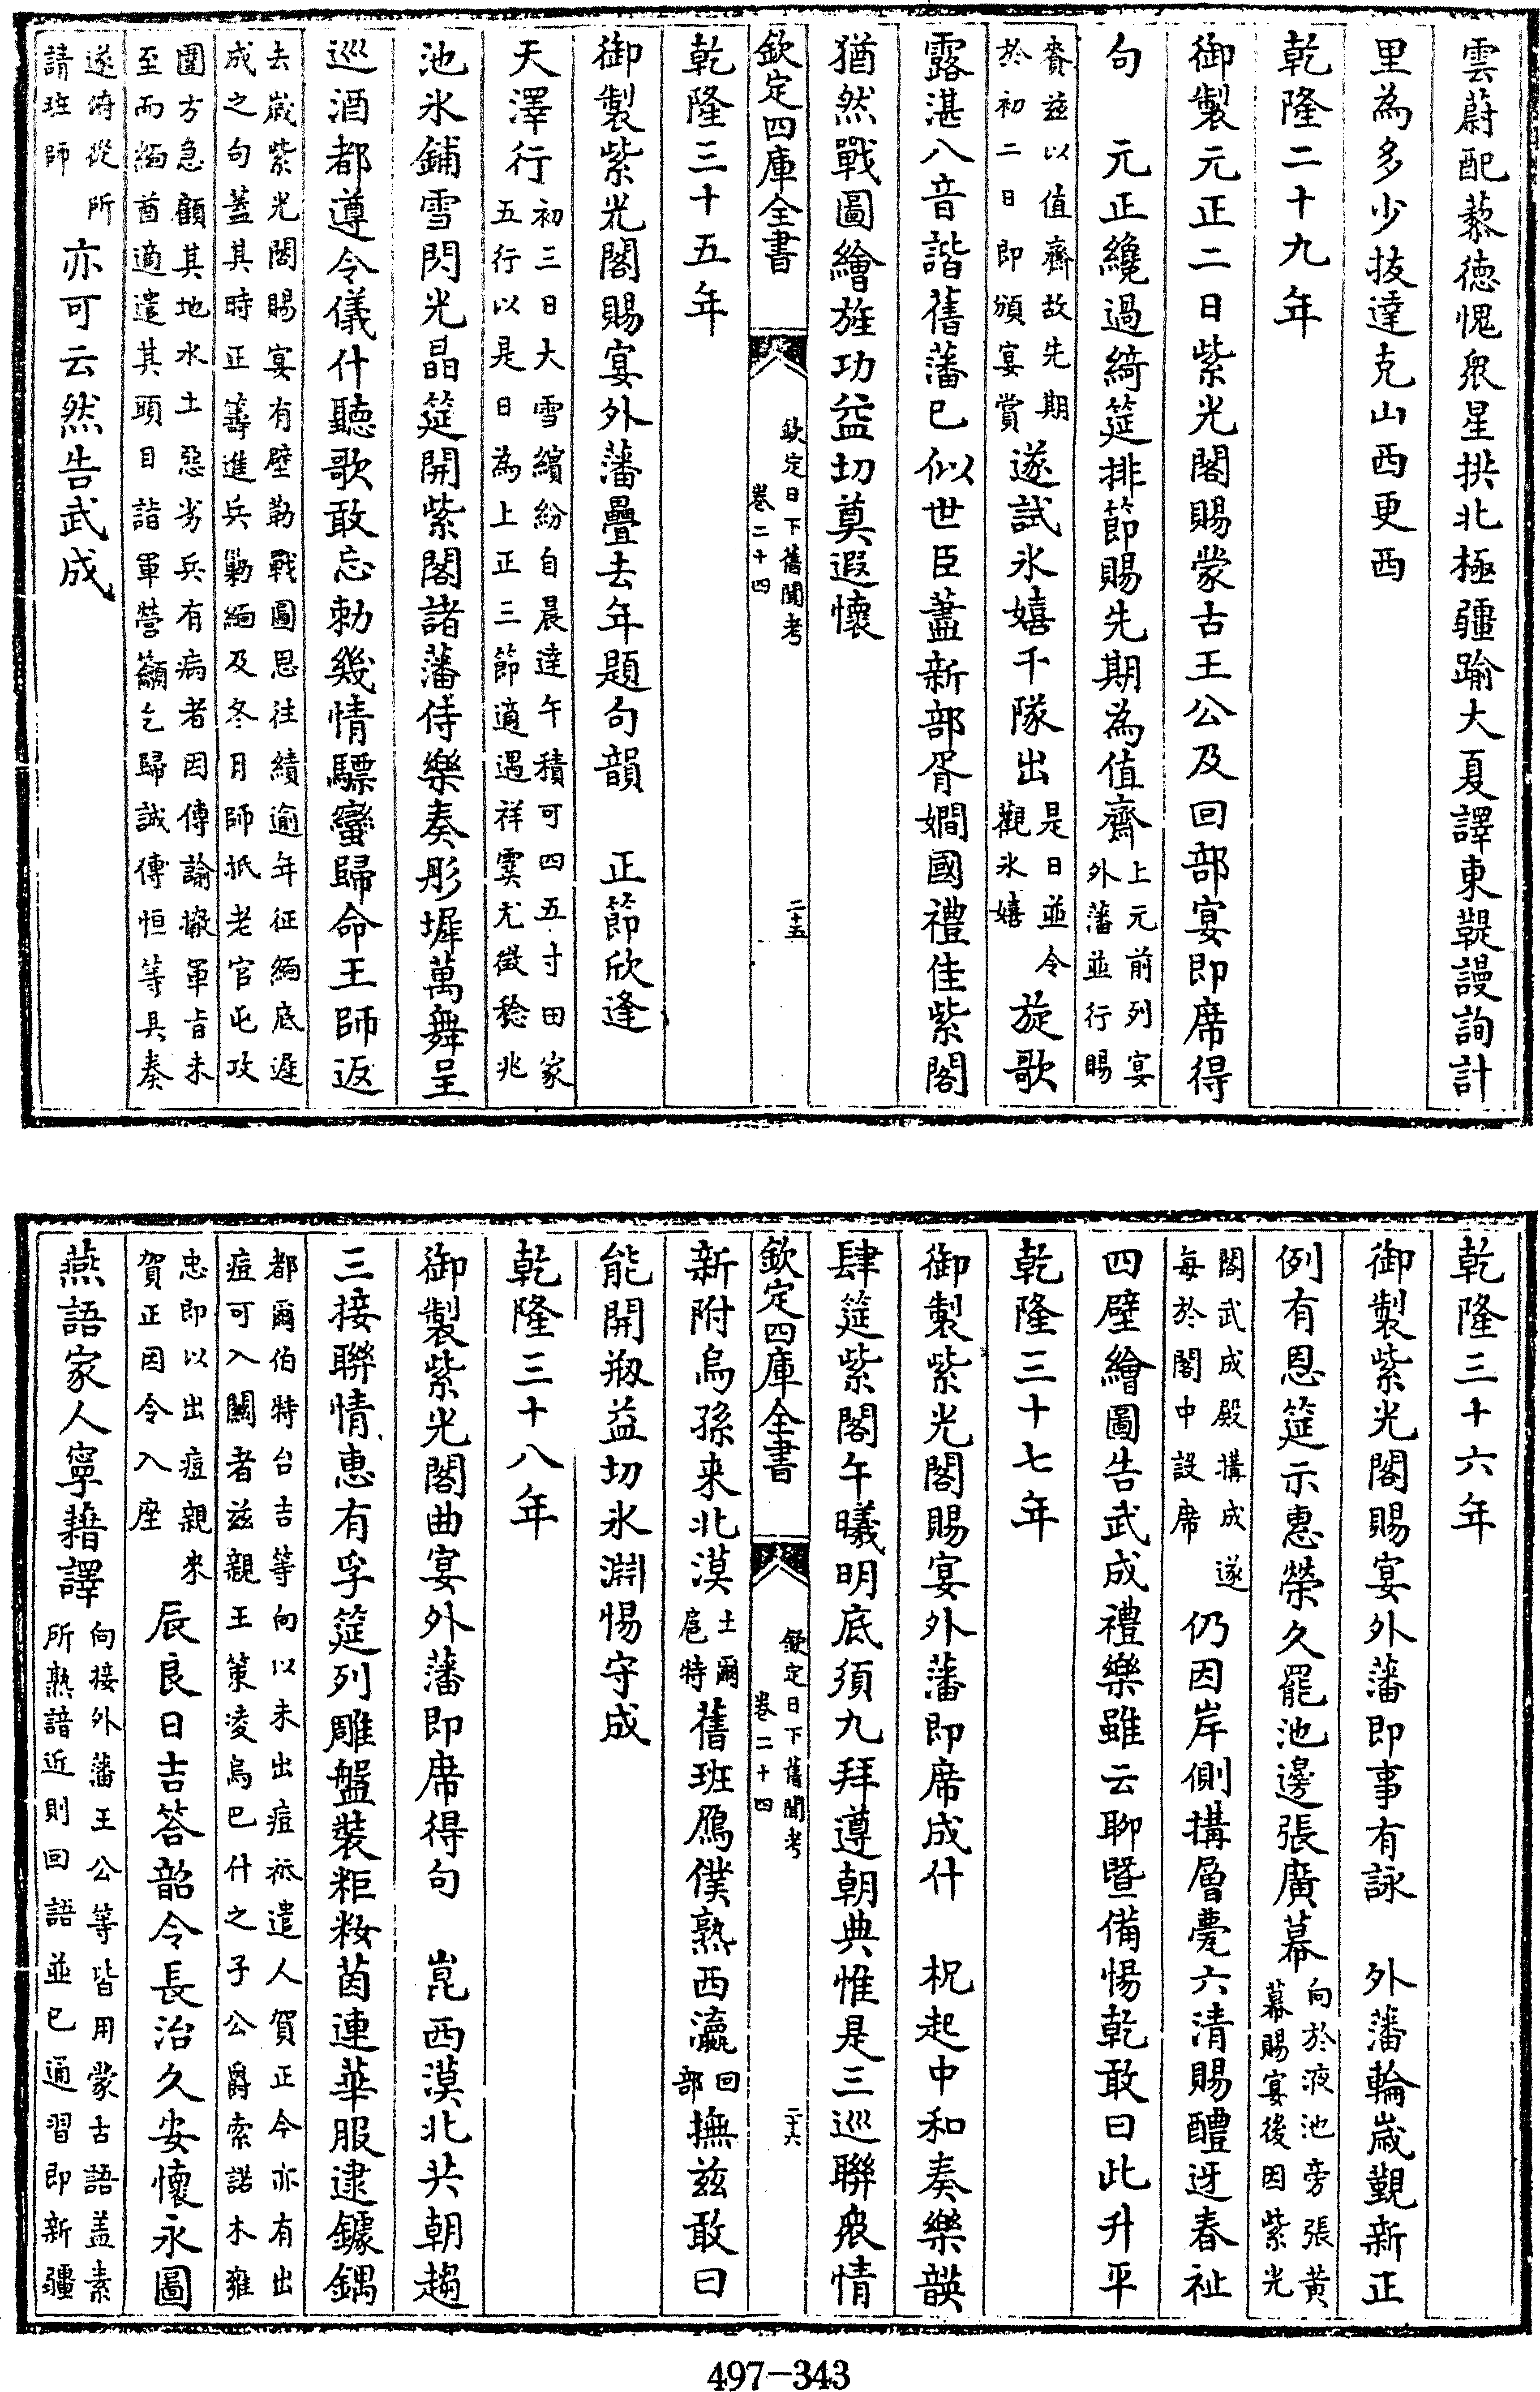 雲蔚配藜徳愧衆星拱北極疆踰大夏譯東鞮謾詢計
里為多少拔達克山西更西
乾隆二十九年
御製元正二日紫光閣賜蒙古王公及回部宴即席得
句　元正纔過綺筵排節賜先期為值齋上元前列宴外藩並行賜
賚兹以值齋故先期於初二日即頒宴賞遂試氷嬉千隊出是日並令觀氷嬉旋歌
露湛八音諧舊藩已似世臣藎新部胥嫺國禮佳紫閣
猶然戰圖繪旌功益切奠遐懷
欽定四庫全書　欽定日下舊聞考卷二十四　二十五
乾隆三十五年
御製紫光閣賜宴外藩疊去年題句韻　正節欣逢
天澤行初三日大雪繽紛自晨達午積可四五寸田家五行以是日為上正三節適遇祥霙尤徵稔兆
池氷鋪雪閃光晶筵開紫閣諸藩侍樂奏彤墀萬舞呈
巡酒都遵令儀什聽歌敢忘勑幾情驃蠻歸命王師返
去歲紫光閣賜宴有壁勒戰圖思往績逾年征緬底遲成之句蓋其時正籌進兵勦緬及冬月師抵老官屯攻
圍方急顧其地水土惡劣兵有病者因傳諭撤軍旨未至而緬酋適遣其頭目詣軍營籲乞歸誠傅恒等具奏
遂俯從所請班師亦可云然告武成
乾隆三十六年
御製紫光閣賜宴外藩即事有詠　外藩輪歲覲新正
例有恩筵示惠榮久罷池邊張廣幕向於液池旁張黄幕賜宴後因紫光
閣武成殿構成遂每於閣中設席仍因岸側構層甍六清賜醴迓春祉
四壁繪圖告武成禮樂雖云聊暨備惕乾敢曰此升平
乾隆三十七年
御製紫光閣賜宴外藩即席成什　柷起中和奏樂韺
肆筵紫閣午曦明底須九拜遵朝典惟是三巡聯衆情
欽定四庫全書　欽定日下舊聞考卷二十四　二十六
新附烏孫来北漠土爾扈特舊班鴈僕熟西瀛回部撫兹敢曰
能開剏益切氷淵惕守成
乾隆三十八年
御製紫光閣曲宴外藩即席得句　崑西漠北共朝趨
三接聯情惠有孚筵列雕盤裝粔籹茵連華服逮鐻鍝
都爾伯特台吉等向以未出痘袛遣人賀正今亦有出痘可入關者兹親王策凌烏巴什之子公爵索諾木雍
忠即以出痘親來賀正因令入座辰良日吉答韶令長治久安懷永圖
燕語家人寧藉譯向接外藩王公等皆用蒙古語盖素所熟諳近則回語並已通習即新疆
497-343